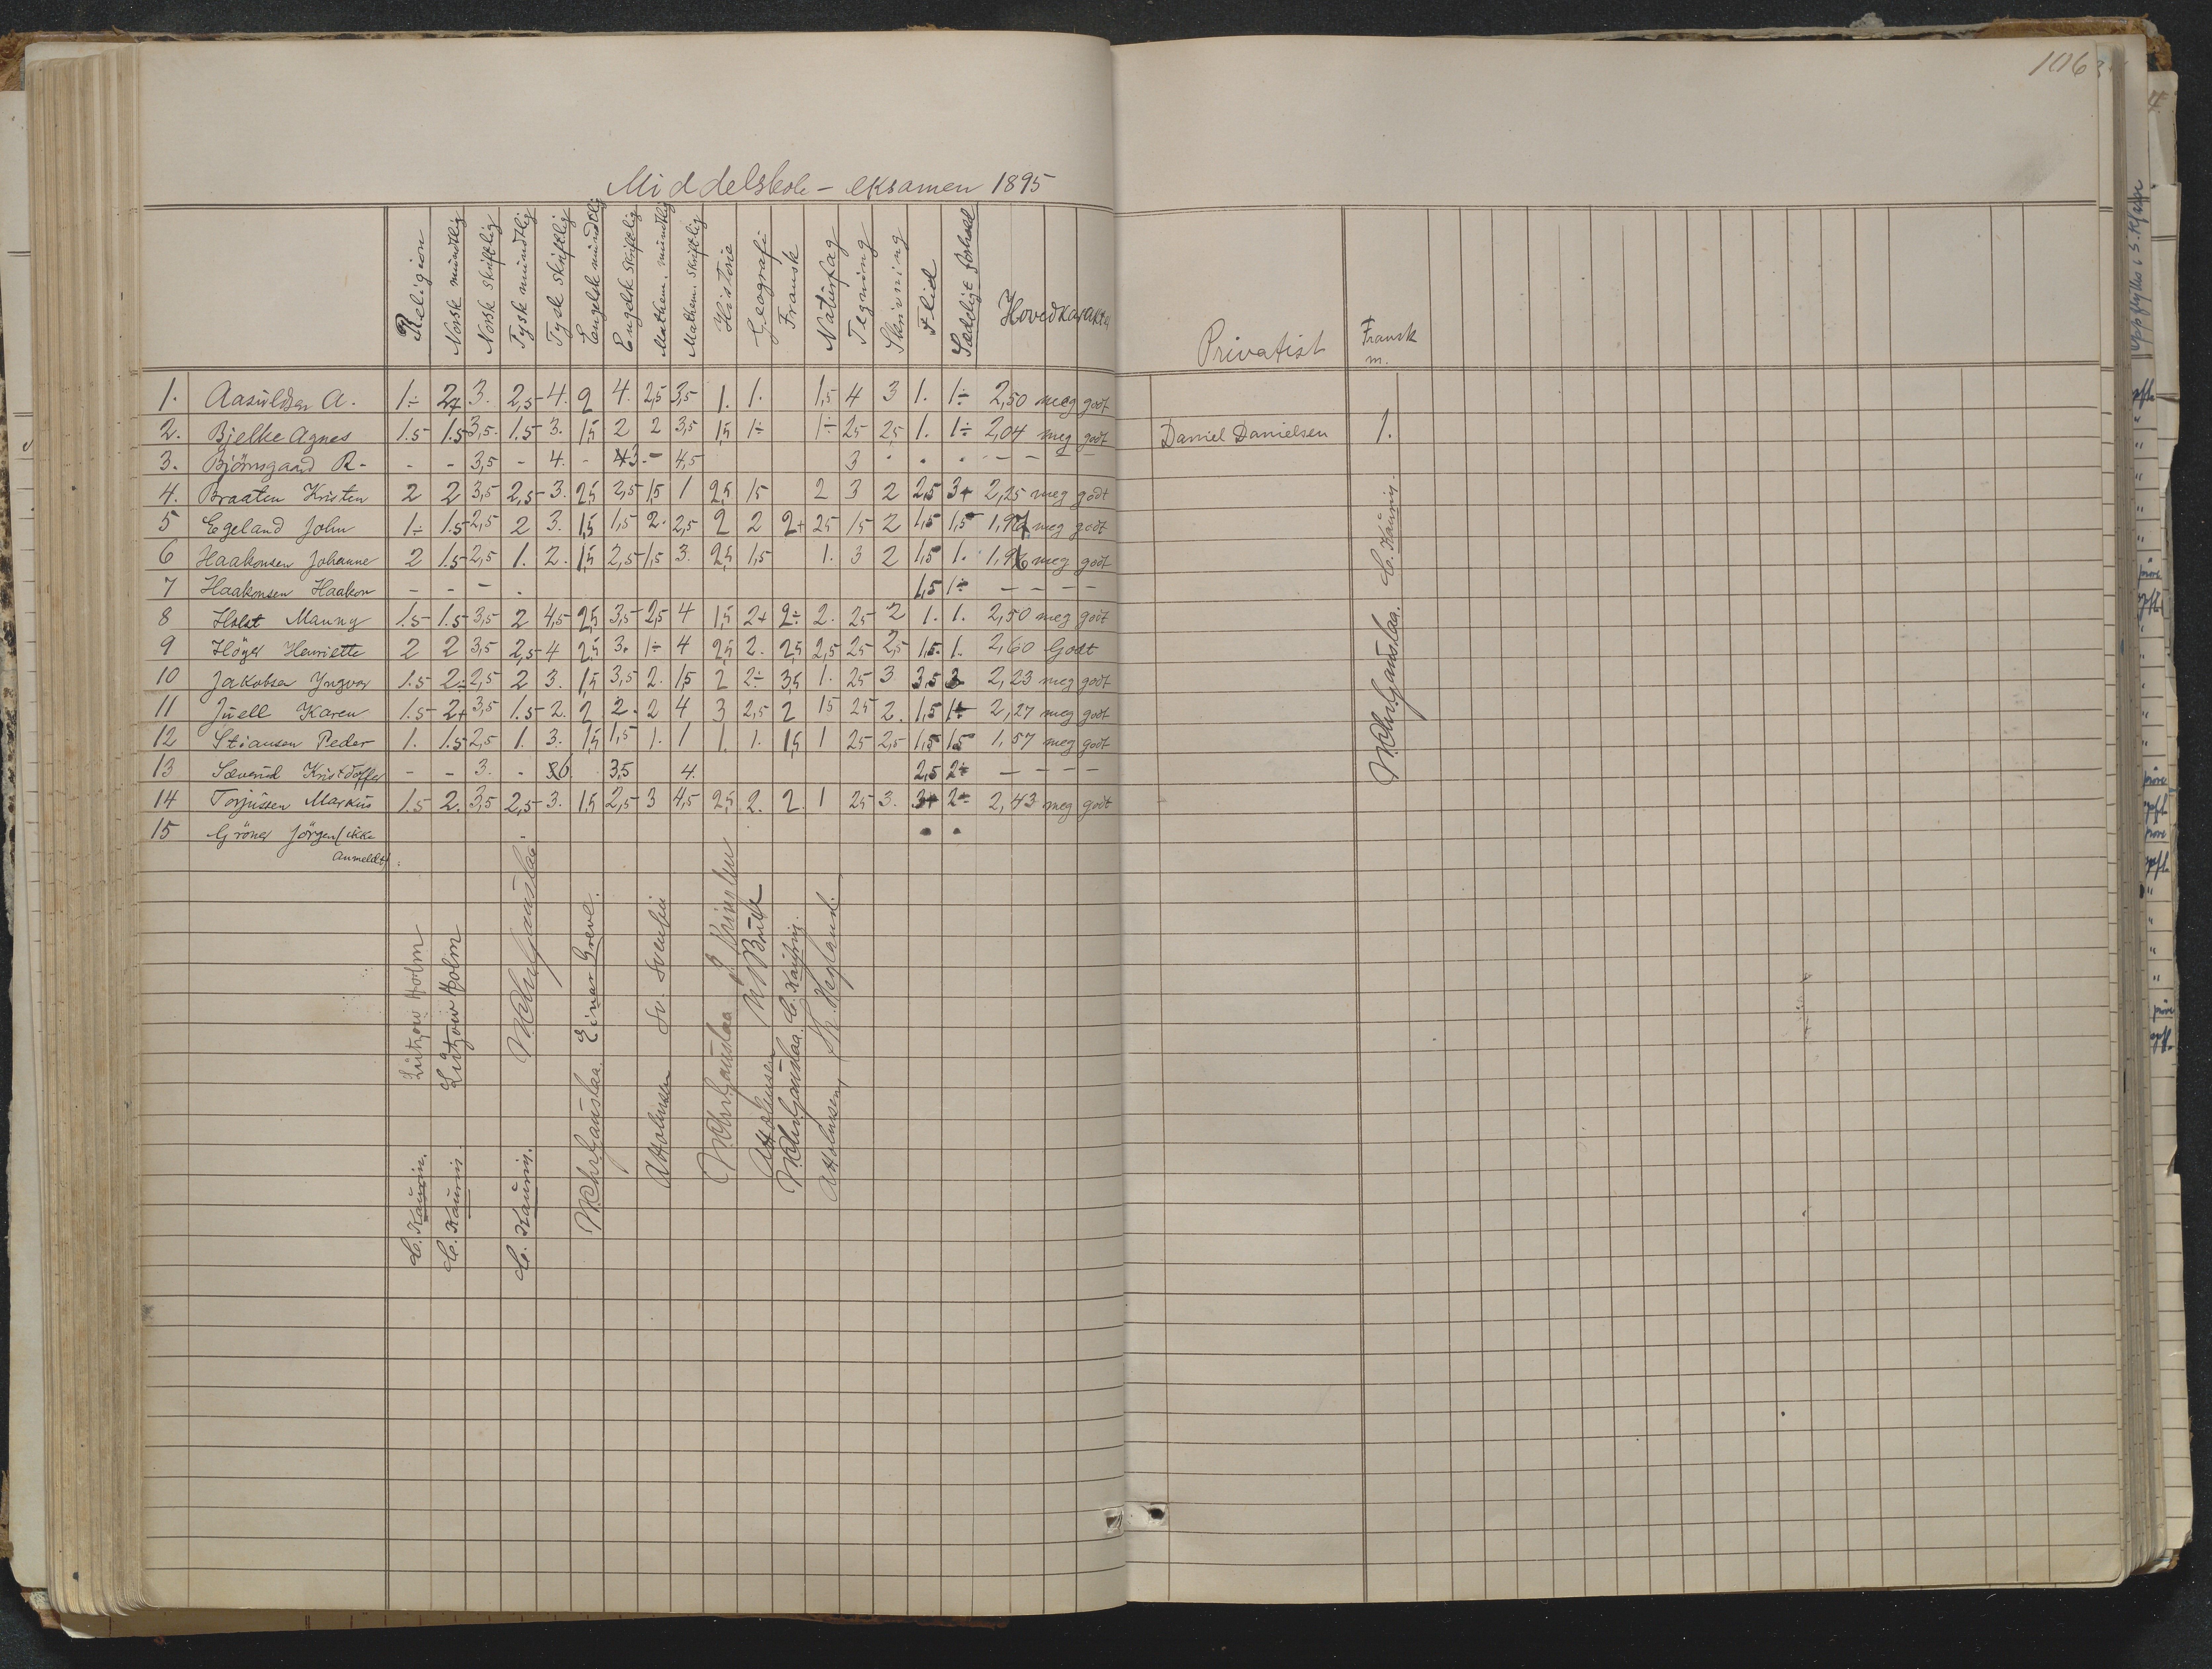 Middelskole - eksamen 1895
Religion Norsk mundtlig Norsk skriftlig Tysk mundtlig Tysk skriftlig Engelsk mundtlig Engelsk skriftlig Mathem. mundtlig Mathem. skriftlig Historie Geografi Fransk Naturfag Tegning Skrivning Flid Sædeligt forhold Hovedkarakter
1. Aasuldsen A. 1÷ 2+ 3. 2,5 4. 2 4. 2,5 3,5 1. 1. 1,5 4 3 1. 1÷ 2,50 meg godt
2. Bjelke Agnes 1.5 1.5 3,5. 1.5 3. 1,5 2 2 3,5 1,5 1÷ 1÷ 25 2,5 1. 1÷ 2,04 meg godt
3. Björnsgaard R. - - 3,5 - 4. - 3. - 4,5 3 - - - - - -
4. Braaten Kristen 2 2 3,5 2,5 3. 2,5 2,5 1,5 1 2,5 15 2 3 2 2,5 3+ 2,25 meg godt
5 Egeland John 1÷ 1.5 2,5 2 3. 1,5 1,5 2. 2,5 2 2 2+ 25 15 2 1,5 1,5 1,97 meg godt
6 Haakonsen Johanne 2 1.5 2,5 1. 2. 1,5 2,5 1,5 3. 2,5 1,5 1. 3 2 1,5 1. 1,96 meg godt
7 Haakonsen Haakon - - - . 1,5 1÷ - - - -
8 Holst Manny 1.5 1.5 3,5 2 4,5 2,5 3,5 2,5 4 1,5 2+ 2÷ 2. 25 2 1. 1. 2,50 meg godt
9 Höyer Henriette 2 2 3,5 2,5 4 2,5 3. 1÷ 4 2,5 2. 2,5 2,5 25 2,5 1,5. 1. 2,60 Godt
10 Jakobsen Yngvar 1.5 2÷ 2,5 2 3. 1,5 3,5 2. 1,5 2 2÷ 3,5 1. 25 3 3,5 3 2,23 meg godt
11 Juell Karen 1.5 2+ 3,5 1.5 2. 2 2. 2 4 3 2,5 2 15 25 2. 1,5 1÷ 2,27 meg godt
12 Stiansen Peder 1. 1.5 2,5 1. 3. 1,5 1,5 1. 1 1. 1. 1,5 1 25 2,5 1,5 1,5 1,57 meg godt
13 Sæverud Kristoffer - - 3. - 6 3,5 4. 2,5 2÷ - - - -
14 Torjussen Markus 1.5 2. 3,5 2,5 3. 1,5 2,5 3 4,5 2,5 2. 2. 1 25 3. 3+ 2÷ 2,43 meg godt
15 Gröner Jörgen (ikke
anmeldt) :
Lützow Holm
C. Kaurin.
Lützow Holm
C. Kaurin
C. Kaurin.
Einar Greve.
Sv. Svensen
C. Kaurin.
106
Privatist
Fransk
m.
Daniel Danielsen 1.
C. Kaurin.